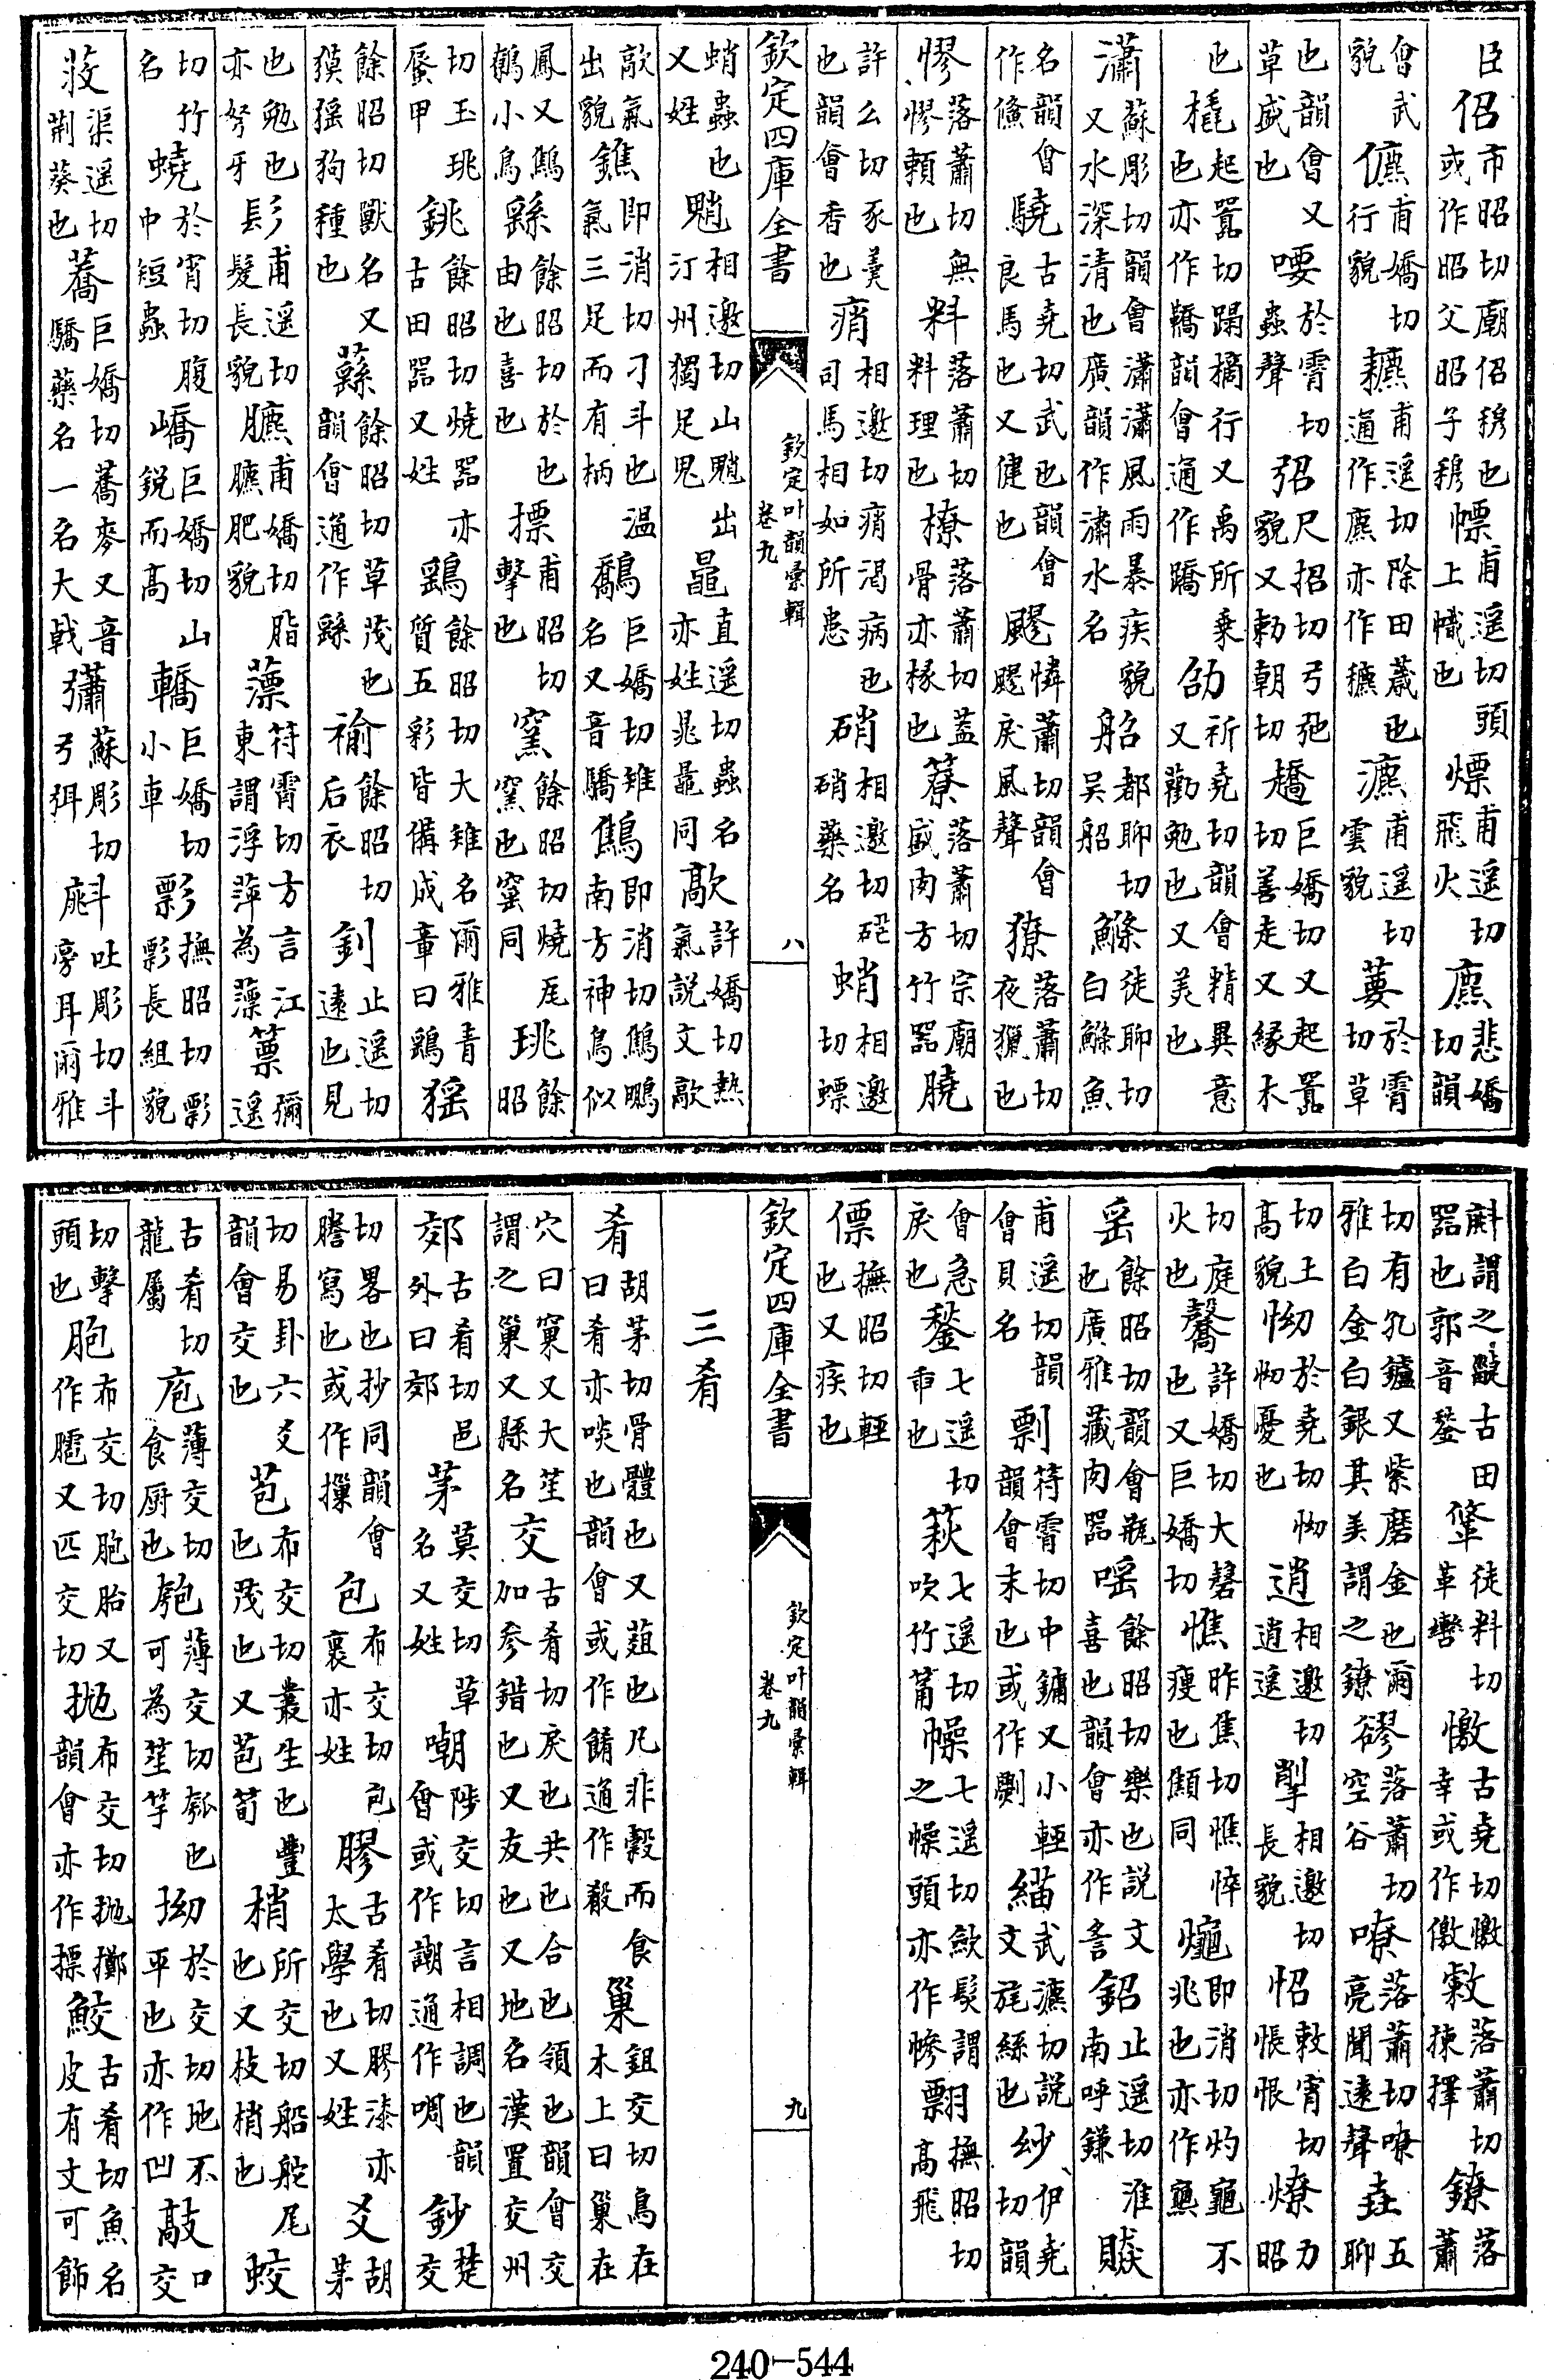 臣佋市昭切廟佋穆也或作昭父昭子穆幖甫遥切頭上幟也熛甫遥切飛火麃悲嬌切韻
會武貌儦甫嬌切行貌穮甫遥切除田薉也通作麃亦作穮瀌甫遥切雲貌葽於霄切草
也韻會又草盛也喓於霄切蟲聲弨尺招切弓弛貌又勑朝切趫巨嬌切又起嚻切善走又緣木
也橇起嚻切蹋摘行又禹所乗也亦作鞽韻會通作蹻劭祈堯切韻會精異意又勸勉也又美也
瀟蘇彫切韻會瀟瀟風雨暴疾貌又水深清也廣韻作潚水名都聊切吳鰷徒聊切白鰷魚
名韻會作鯈驍古堯切武也韻會良馬也又健也飉憐蕭切韻會飉戾風聲獠落蕭切夜獵也
憀落蕭切無憀賴也料落蕭切料理也橑落蕭切蓋骨亦椽也簝落蕭切宗廟盛肉方竹器膮
許么切豕羮也韻會香也痟相邀切痟渴病也司馬相如所患硝相邀切硭硝藥名蛸相邀切螵
欽定四庫全書 欽定叶韻彙輯 卷九 八
蛸蟲也又姓魈相邀切山魈出汀州獨足鬼鼂直遥切蟲名亦姓鼌鼂同歊許嬌切熱氣說文歊
歊氣出貌鐎即消切刁斗也温氣三足而有柄鷮巨嬌切雉名又音驕鷦即消切鷦鵬南方神鳥似
鳳又鷦鷯小鳥繇餘昭切於也由也喜也摽甫昭切擊也窯餘昭切燒瓦窯也窰同珧餘昭
切玉珧蜃甲銚餘昭切燒器亦古田器又姓鷂餘昭切大雉名爾雅青質五彩皆備成章曰鷂猺
餘昭切獸名又獏猺狗種也蘨餘昭切草茂也韻會通作繇褕餘昭切后衣釗止遥切遠也見
也勉也亦弩牙髟甫遥切髮長貌臕甫嬌切脂臕肥貌薸符霄切方言江東謂浮萍為薸篻彌遥
切竹名蟯於宵切腹中短蟲嶠巨嬌切山銳而高轎巨嬌切小車彯撫昭切彯彯長組貌
荍渠遥切荆葵也蕎巨嬌切蕎麥又音驕藥名一名大戟彇蘇彫切弓弭𣂁吐彫切斗旁耳爾雅
𣂁謂之疀古田器也郭音鍫鞗徒料切革轡憿古堯切憿幸或作儌敹落蕭切揀擇鐐落蕭
切有孔鑪又紫磨金也爾雅白金白銀其美謂之鐐豂落蕭切空谷嘹落蕭切嘹亮聞遠聲垚五聊
切土高貌怮於堯切怮怮憂也逍相邀切逍遥揱相邀切長貌怊敕宵切悵恨燎力昭
切庭火也毊許嬌切大磬也又巨嬌切憔昨焦切憔悴瘦也顦同即消切灼龜不兆也亦作
䍃餘昭切韻會瓶也廣雅藏肉器嗂餘昭切樂也說文喜也韻會亦作䚻鉊止遥切淮南呼鎌
甫遥切韻會貝名剽符霄切中鏞又小輕韻會末也或作緢武瀌切說文旄絲也伊堯切韻
會急戾也鍫七遥切臿也篍七遥切吹竹筩幧七遥切斂髮謂之幧頭亦作幓翲撫昭切高飛
僄撫昭切輕也又疾也
欽定四庫全書 欽定叶韻彙輯 卷九 九
三肴
肴胡茅切骨體也又葅也凡非穀而食曰肴亦啖也韻會或作餚通作殽巢鉏交切鳥在木上曰巢在
穴曰窠又大笙謂之巢又縣名交古肴切戾也共也合也領也韻會交加參錯也又友也又地名漢置交州
郊古肴切邑外曰郊茅莫交切草名又姓嘲陟交切言相調也韻會或作謿通作啁鈔楚交
切畧也抄同韻會謄寫也或作摷包布交切包裹亦姓膠古肴切膠漆亦太學也又姓爻胡茅
切易卦六爻韻會交也苞布交切叢生也豐也茂也又苞筍梢所交切船舵尾也又枝梢也蛟
古肴切龍屬庖薄交切食厨也匏薄交切瓠也可為笙竽坳於交切地不平也亦作凹敲口交
切擊頭也胞布交切胞胎又作又匹交切拋布交切拋擲韻會亦作摽鮫古肴切魚名皮有文可飾
240-544